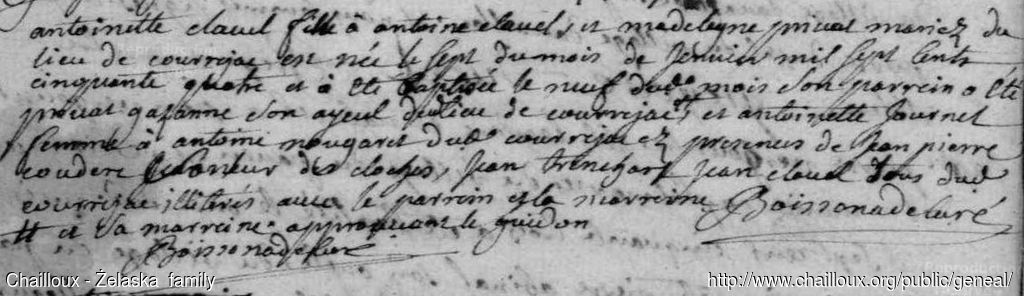 antoinette clavel fille à antoine clavel, et madeleyne privat mariez du
lieu de courrejac est née le sept du mois de Janvier mil sept cents
cinquante quatre et à été baptisée le neuf dud. mois son parrein a été
privat gazanne son ayeul du lieu de courrejac # et antoinette Journet
femme à antoine nougaret dud. courrejac ez presences de jean pierre
couderc sonneur des cloches, Jean trenchart Jean clavel tous dud.
courrejac illiterés avec le parrein et la marreine Boissonade curé
# et sa marreine approuvant le guidon
Boissonade curé
Chailloux - Želaska family
http://www.chailloux.org/public/geneal/